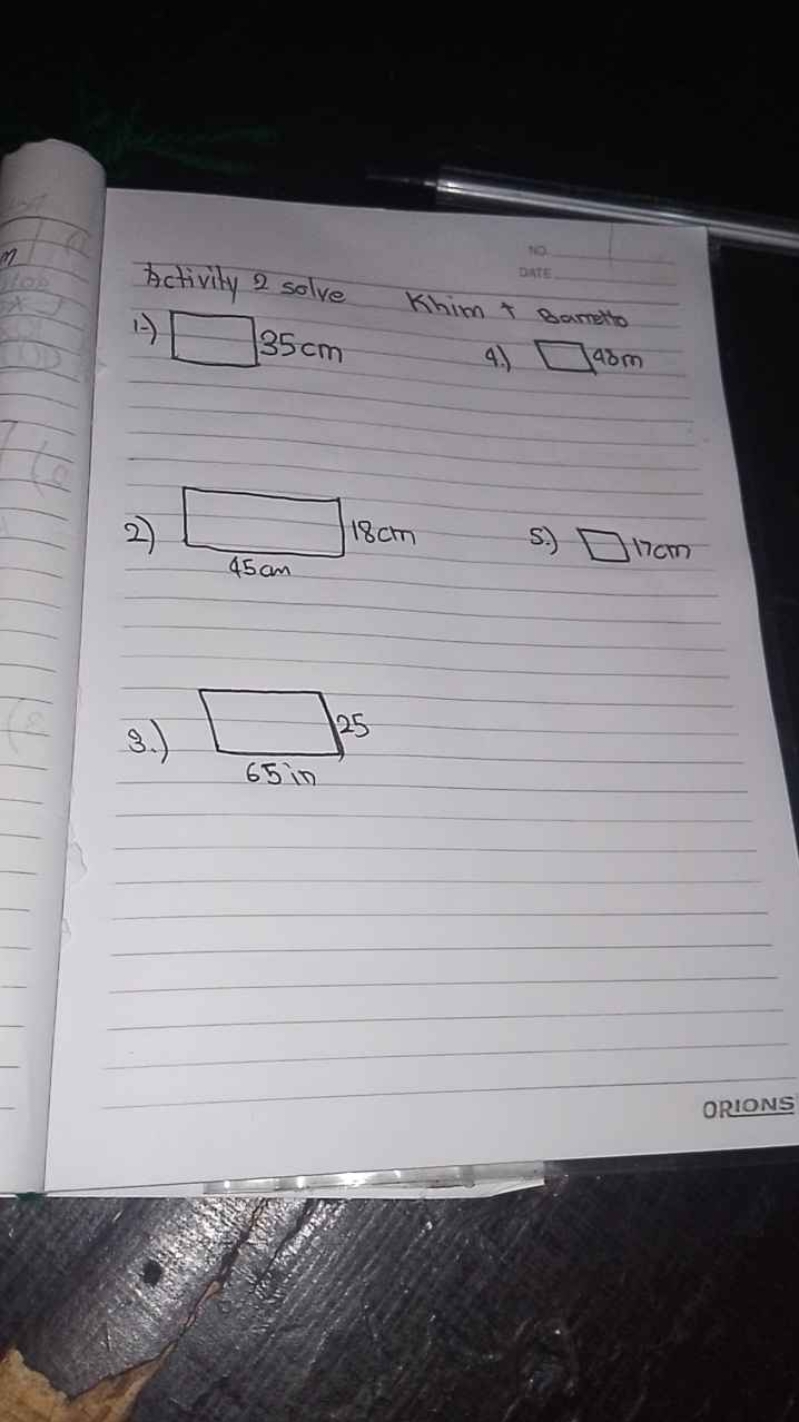 NO.
DATE
Activity 2 solve Khim t Barretto
1.) 35cm
4.) 48m
2) 18cm
45cm
5.) 17cm
3.) 25
65in
ORIONS